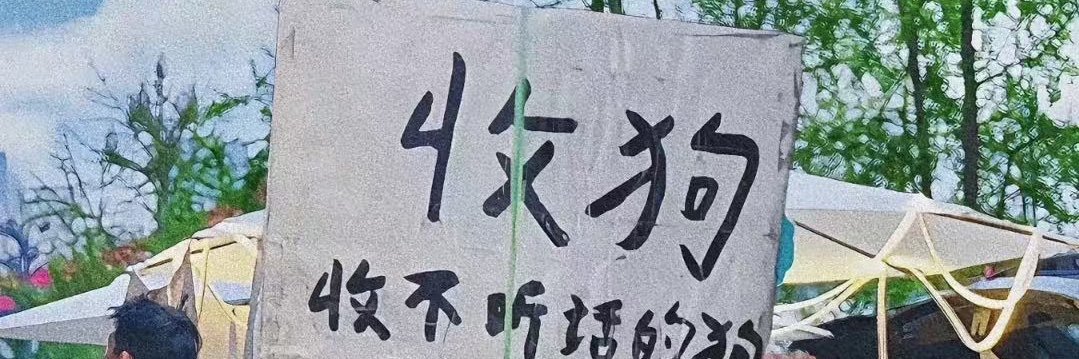 收狗
收不听话的狗